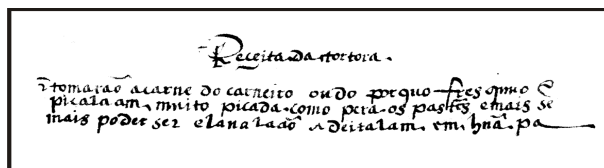 Receita da tortora.
tomaraão a carne do carneiro ou do porquo fresquo E
picalaam, muito picada. como pera os pastes e mais se
mais poder ser e lanalaão deitalam, em hnã. pa